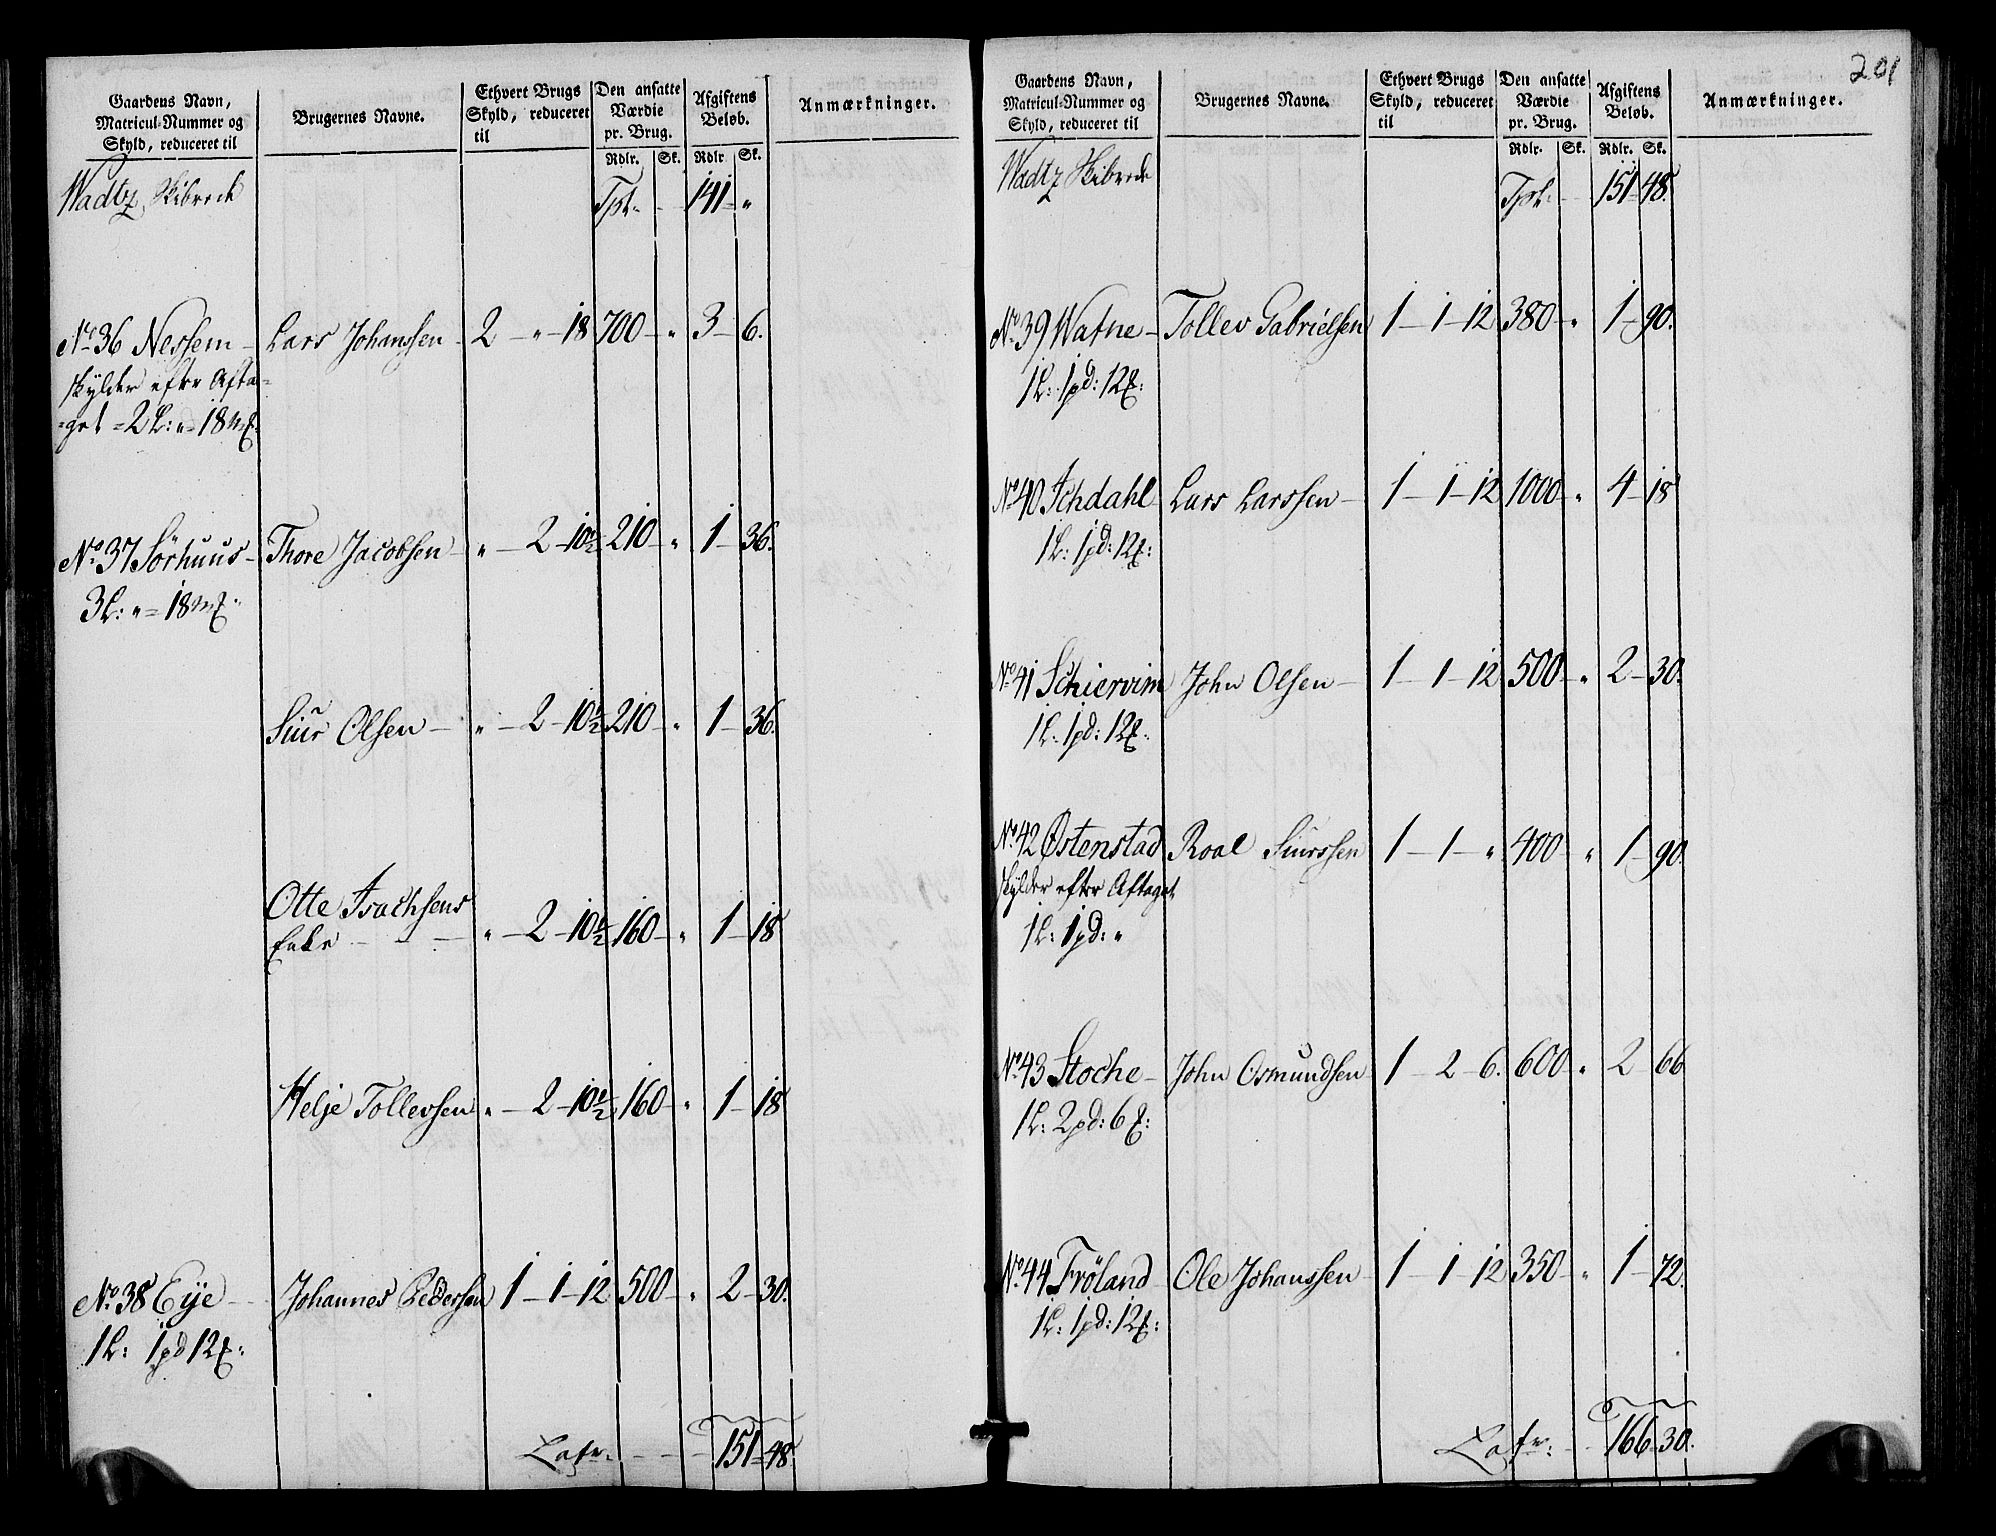 Gaardens Navn,
Matricul-Nummer og
Skyld, reduceret til
Brugernes Navne.
Ethvert Brugs
Skyld, reduceret
til
Den ansatte
Værdie
pr. Brug.
Rdlr. Sk.
Afgiftens
Beløb.
Rdlr Sk.
Anmærkninger.
Wadtz Skibrede
Tpt. - 141 "
No 36 Nessem - Lars Johanssen - 2 - " - 18 700 - " 3 - 6.
skylder efter Afta=
=get = 2 L: " = 18 m
No 37 Sörhuus - Thore Jacobsen - " - 2 - 10½ 210 - " 1 - 36.
3 L: " = 18 m
Siur Olsen - " - 2 - 10½ 210 - " 1 - 36.
Otte Isachsens
Enke - - - " - 2 - 10½ 160 - " 1 - 18
Helje Tollevsen " - 2 - 10½ 160 - " 1 - 18
No 38 Eije - Johannes Pedersen 1 - 1 - 12 500 - " 2 - 30.
1 L: 1 pd 12
Latr: - - - 151 = 48.
201
Gaardens Navn,
Matricul-Nummer og
Skyld, reduceret til
Brugernes Navne.
Ethvert Brugs
Skyld, reduceret
til
Den ansatte
Værdie
pr. Brug.
Rdlr. Sk.
Afgiftens
Beløb.
Rdlr. Sk.
Anmærkninger.
Wadtz Skibrede
Tpt. - 151 48.
No 39 Watne - Tollev Gabrielsen 1 - 1 - 12 380 - " 1 - 90.
1 L: 1 pd: 12
No 40 Ichdahl Lars Larssen - 1 - 1 - 12 1000 - " 4 - 18
1 L: 1 pd: 12
No 41 Schiervim John Olsen - 1 - 1 - 12 500 - " 2 - 30.
1 L: 1 pd: 12
No 42 Østenstad Roal Siurssen 1 - 1 - " 400 - " 1 - 90.
skylder efter Aftaget
1 L: 1 pd: "
No 43 Stoche - John Osmundsen 1 - 2 - 6. 600 - " 2 66
1 L: 2 pd: 6
No 44 Fröland Ole Johanssen - 1 - 1 - 12 350 - " 1 - 72.
1 L: 1 pd: 12
Latr: - - 166 - 30.